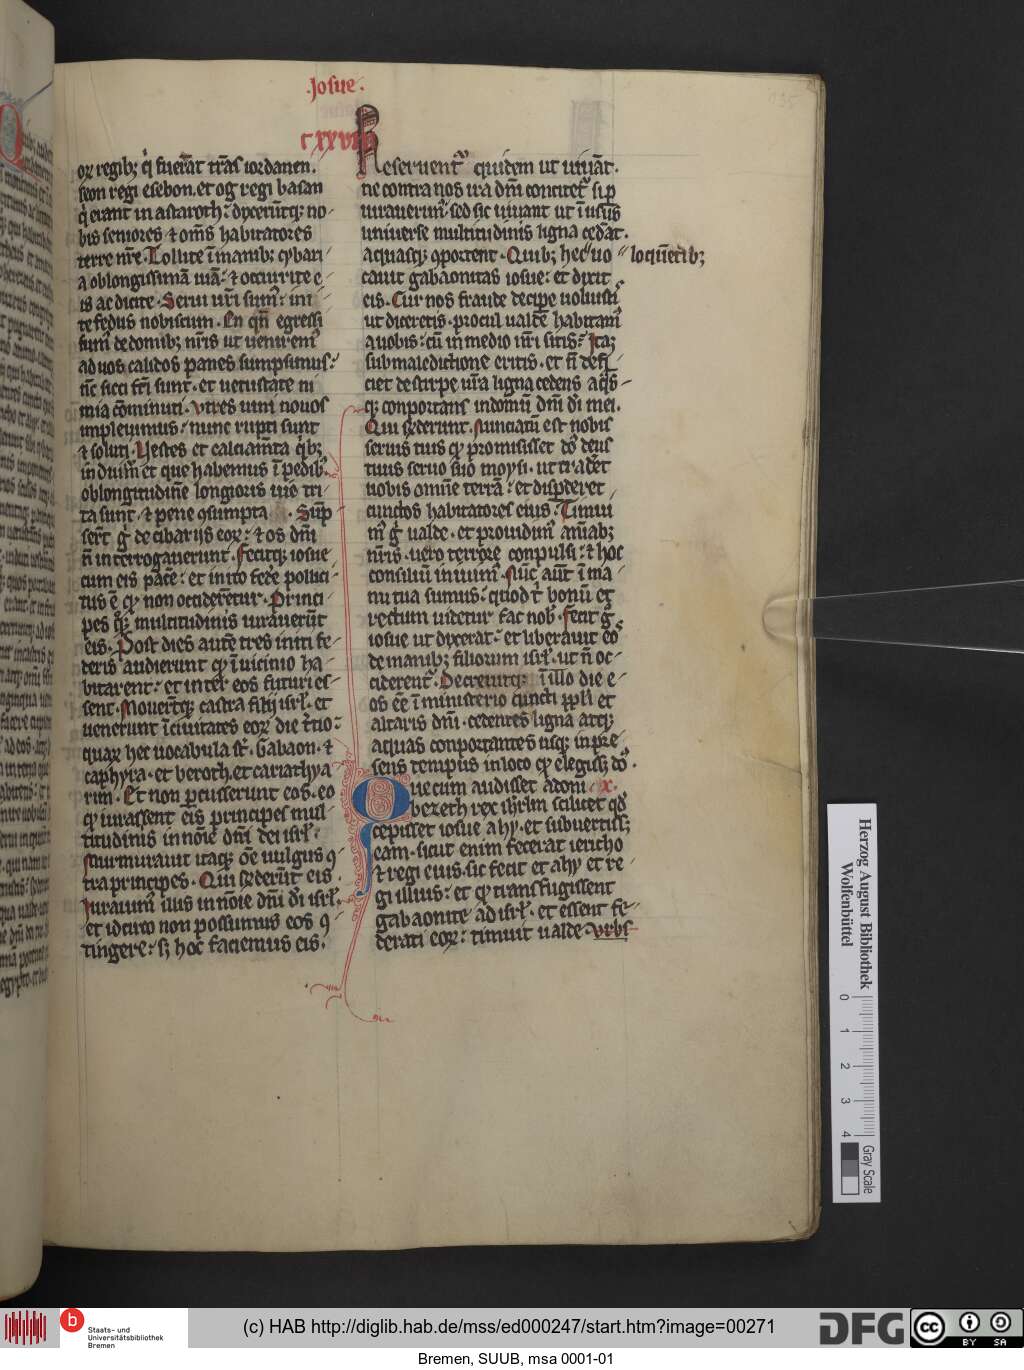 .Josue.
CXXVII
oꝝ regibꝫ q̇ fuer̄āt trās iordanen.
seon regi esebon. et og regi basan
q̇ erant in astaroth: dixerūtqꝫ no
bis seniores ⁊ om̄s habitatores
terre nr̄e. Tollite ī manibꝫ cybari
a oblongissimā uiā: ⁊ occurrite e
is ac dicite. Serui ur̄i sumꝰ: ini
te fedus nobiscum. En qn̄ egressi
sumꝰ de domibꝫ nr̄is ut ueniremꝰ
ad uos calidos panes sumpsimus:
nc̄ sicci fc̄i sunt. et uetustate ni
mia cōminuti. vtres uini nouos
impleuimus: nunc rupti sunt
⁊ soluti. Uestes et calciam̄ta q̇bꝫ
induim̄ et que habemus ī pedibꝰ
oblongitudin̄e longioris uie tri
ta sunt. ⁊ pene ꝯsumpta. Susp̄
sert̄ g̊ de cibarijs eoꝝ: ⁊ os dm̄i
n̄ interrogauerunt. Fecitqꝫ iosue
cum eis pacē: et inito fed̄e pollici
tus ē qꝫ non occiderētur. Princi
pes qꝫ multitudinis iurauerūt
eis. Post dies autē tres initi fe
deris audierunt qꝫ ī uicinio ha
bitarent: et inter eos futuri es
sent. Mouerūtqꝫ castra filij isrl̄. et
uenerunt ī ciuitates eoꝝ die t̄tio:
quaꝝ hec uocabula st̄. Gabaon. ⁊
caphyra. et beroth. et cariathya
rim. Et non ꝑcusserunt eos. eo
qꝫ iurassent eis principes mul
titudinis in noīe dm̄i dei isrl̄:
Murmurauit itaqꝫ om̄e uulgus ꝯ
tra principes. Qui r̄sꝑderūt eis.
Iurauimꝰ illis in noīe dm̄i di̅ isrl̄.
et idcirco non possumus eos ꝯ
tingere: sꝫ hoc faciemus eis.
Reseruentꝰ quidem ut uiuāt.
ne contra nos ira dm̄i concitetꝰ si ꝑ
iurauerimꝰ: sed sic uiuant ut ī usus
uniuerse multitudinis ligna cedāt.
aquasqꝫ ꝯportent. Quibꝫ hec // loquētibꝫ
uo
cauit gabaonitas iosue: et dixit
eis. Cur nos fraude decipe uoluisti
ut diceretis. procul ualde habitamꝰ
a uobis: cū in medio nr̄i sitis: Itaqꝫ
sub maledictione eritis. et n̄ defi
ciet de stirpe ur̄a ligna cedens aq̄s
qꝫ conportans in domū dm̄i di̅ mei.
Qui r̄sꝑderunt. Nunciatū est nobis
seruis tuis qꝫ promisisset dn̄s deus
tuus seruo suo moysi. ut tradet
uobis omne terrā: et disperderet
cunctos habitatores eius: Timui
mꝰ g̊ ualde. et prouidimꝰ animabꝫ
nr̄is. uero terrore conpulsi: ⁊ hoc
consiliū iniuimꝰ. Nūc aūt ī ma
nu tua sumus: quod t̄ bonū et
rectum uidetur fac nobꝰ. Fecit g̊
iosue ut dixerat: et liberauit eos
de manibꝫ filiorum isrl̄. ut n̄ oc
ciderentꝰ. Decreuitqꝫ ī illo die e
os ee ī ministerio cuncti ppl̄i et
altaris dm̄i. cedentes ligna atqꝫ
aquas conportantes usqꝫ in pre
sens tempus in loco qꝫ elegissꝫ dn̄s.
Que cum audisset adoni .x.
bezech rex ihrl̄m scilicet qd̄
cepisset iosue ahy. et subuertissꝫ
eam. sicut enim fecerat iericho
⁊ regi eius. sic fecit et ahy et re
gi illius: et qꝫ transfugissent
gabaonite ad isrl̄. et essent fe
derati eoꝝ: timuit ualde. Vrbs
Herzog August Bibliothek
Wolfenbüttel
0 1 2 3 4
Gray Scale
b Staats- und
Universitätsbibliothek
Bremen
(c) HAB http://diglib.hab.de/mss/ed000247/start.htm?image=00271
DFG
cc BY SA
Bremen, SUUB, msa 0001-01